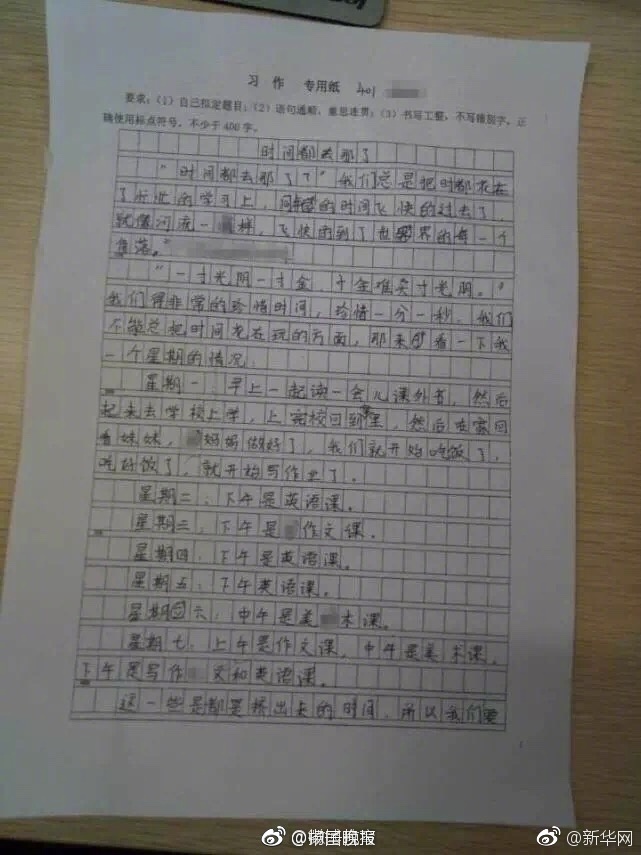 习 作 专用纸 401
要求：（1）自己拟定题目；（2）语句通顺，意思连贯；（3）书写工整，不写错别字，正
确使用标点符号。不少于400字。
时间都去那了
“时间都去那了？”我们总是把时都花在
了忙的学习上，间的时间飞快的过去了，
就像河流一样，飞快的到了世界的每一个
角落。”
“一寸光阴一寸金，千金难买寸光阴。”
我们得非常的珍惜时间，珍惜一分一秒。我们
不能总把时间花在玩的方面，那来看一下我
一个星期的情况：
星期一：早上一起读一会儿课外书，然后
起来去学校上学，上完校回到家里，然后在家回
看妹妹，妈妈做好了，我们就开始吃饭了，
吃好饭了，就开始写作业了。
星期二：下午是英语课。
星期三：下午是作文课。
星期四：下午是英语课。
星期五：下午英语课。
星期六：中午是美术课。
星期七：上午是作文课，中午是美术课。
下午是写作文和英语课。
这一些是都是挤出来的时间，所以我们要
1
@新华网